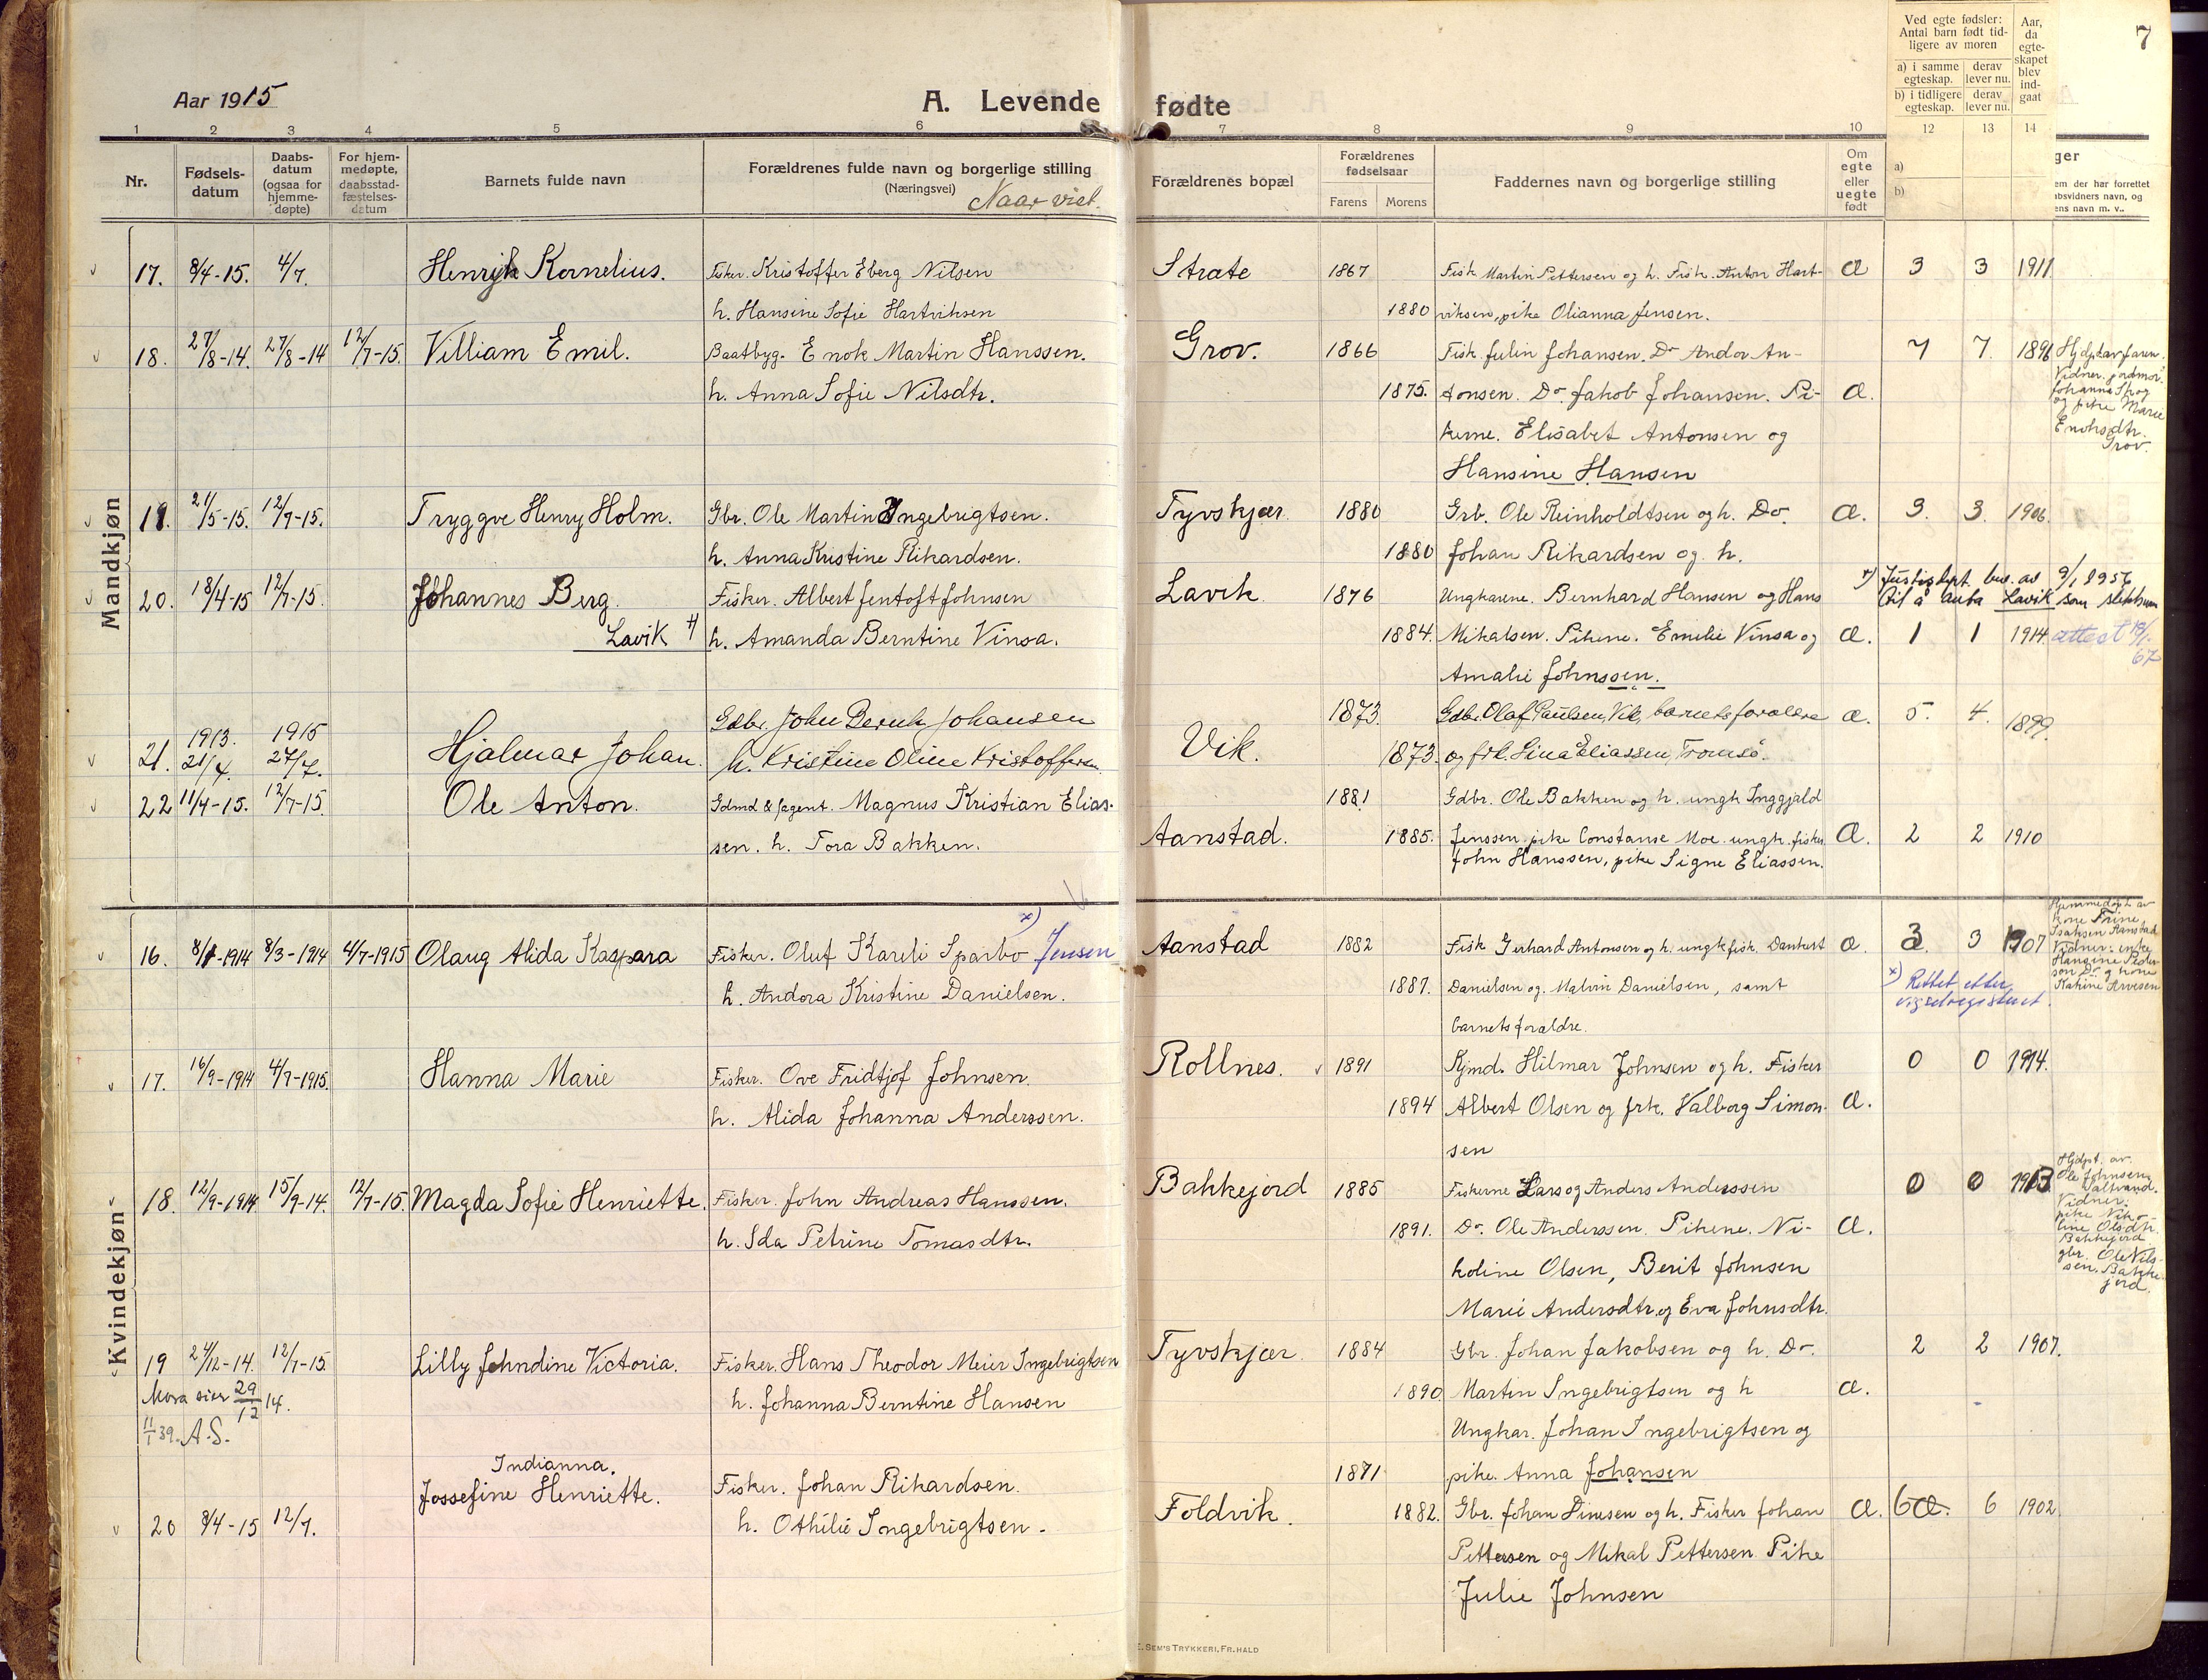 Aar 1915
A. Levende fødte
7
1 2 3 4 5 6 7 8 9 10 12 13 14
Nr.
Fødsels-datum
Daabs-datum (ogsaa for hjemme-døpte)
For hjem-medøpte, daabsstad-fæstelses-datum
Barnets fulde navn
Forældrenes fulde navn og borgerlige stilling
(Næringsvei)
Naar viet.
Forældrenes bopæl
Forældrenes fødselsaar
Farens Morens
Faddernes navn og borgerlige stilling
Om egte eller uegte født
Ved egte fødsler: Antal barn født tid-ligere av moren
a) i samme egteskap. derav lever nu.
b) i tidligere egteskap. derav lever nu.
Aar, da egte-skapet blev ind-gaat
a)
b)
ger
em der har forrettet
absvidners navn, og
ens navn m. v..
Mandkjøn
17. 8/4-15. 4/7. Henryk Kornelius. Fisker. Kristoffer Eberg Nilsen Strate 1867 Fisk Martin Pettersen og h. Fisk. Anton Hart- Æ 3 3 1911
h. Hansine Sofie Hartviksen 1880 viksen, pike Olianna Jensen.
18. 27/8-14. 27/8-14 12/7-15. Villiam Emil. Baatbyg. Enok Martin Hanssen. Grov. 1866 Fisk. Julin Johansen. Do Andor An- 7 7. 1896 Hjdpt av faren.
h. Anna Sofie Nilsdtr. 1875. tonsen. Do. Jakob Johansen. Pi- Æ. Vidner. jordmor.
kerne. Elisabet Antonsen og Johanna Skog
Hansine Hansen og pike Marie
Enoksdtr. Grov.
19. 21/5-15. 12/9-15. Tryggve Henry Holm. Gbr. Ole Martin Ingebrigtsen. Tyvskjær 1880 Grb. Ole Reinholdtsen og h. Do. Æ. 3. 3. 1906.
h. Anna Kristine Rikardsen. 1880 Johan Rikardsen og h.
20. 18/4-15 12/7-15. Johannes Berg. Fisker. Albert Jentoft Johnsen Lavik 1876 Ungkarene. Bernhard Hansen og Hans x) Justisdept. bev. av 9/1 1956
Lavik x) h. Amanda Berntine Vinsa. 1884. Mikalsen. Pikene. Emelie Vinsa og Æ. 1 1 1914 til å anta Lavik som slektsnavn
Amalie Johnssen. attest 19/1-67
21. 1913. 21/4. 1915 27/7. Hjalmar Johan. Gdbr. John Bernh Johansen Vik. 1873 Gdbr. Olaf Paulsen, Vik, barnets forældre Æ. 5. 4. 1899.
h. Kristine Oline Kristoffersen. 1873. og frk. Lina Eliassen, Tromsø.
22 11/4-15. 12/7-15 Ole Anton. Gdmd & agent. Magnus Kristian Elias- 1881 Gdbr. Ole Bakken og h. ungk Inggjald
sen. h. Tora Bakken. Aanstad. 1885. Jenssen. pike Constanse Moe. ungk. fisker Æ. 2 2 1910
John Hanssen, pike Signe Eliassen.
Kvindekjøn
16. 8/1-1914 8/3-1914 4/7-1915 Olaug Alida Kaspara Fisker. Oluf Kareli Sparbo x) Jensen Aanstad 1882 Fisk Gerhard Antonsen og h. ungk fisk. Dankert Æ. 3 3 1907 Hjemmedøpt av
h. Andora Kristine Danielsen. 1887. Danielsen og. Malvin Danielsen, samt kone Trine
barnets forældre. x) Rettet etter vigselregisteret. Isaksen Aanstad
Vidner: enke Hansine Peder-
sen Do og kone
Katrine Arvesen
17. 16/9-1914 4/7-1915. Hanna Marie Fisker. Ove Fridtjof Johnsen. Rollnes. 1891 Kjmd. Hilmar Johnsen og h. Fisker 0 0 1914.
h. Alida Johanna Anderssen. 1894 Albert Olsen og frk. Valborg Simon- Æ.
sen
18. 12/9-1914 15/9-14. 12/7-15. Magda Sofie Henriette. Fisker. John Andreas Hanssen. Bakkejord 1885 Fiskerne Lars og Anders Anderssen 0 0 1913 Hjdpt. av
h. Ida Petrine Tomasdtr. 1891. Do. Ole Anderssen. Pikene. Ni- Æ. Ole Johnsen,
koline Olsen, Berit Johnsen Saltvand.
Marie Andersdtr. og Eva Johnsdtr. Vidner:
pike Niko-
line Olsdtr.
Bakkejord
gbr. Ole Nils-
sen. Bakke-
jord.
19 24/12-14. 12/7-15 Lilly Johndine Victoria. Fisker. Hans Theodor Meier Ingebrigtsen Tyvskjær 1884 Gbr. Johan Jakobsen og h. Do. 2 2 1907.
Mora sier 29/12 14. h. Johanna Berntine Hansen 1890 Martin Ingebrigtsen og h Æ.
11/1 39. A.S. Ungkar. Johan Ingebrigtsen og
pike. Anna Johansen
20 8/4-15 12/7. Indianna. Jossefine Henriette. Fisker. Johan Rikardsen. 1871
h. Othilie Ingebrigtsen. Foldvik. 1882. Gbr. Johan Dinesen og h. Fisker Johan Æ. 6 6 1902
Pettersen og Mikal Pettersen Pike
Julie Johnsen
E. SEM'S TRYKKERI, FR.HALD